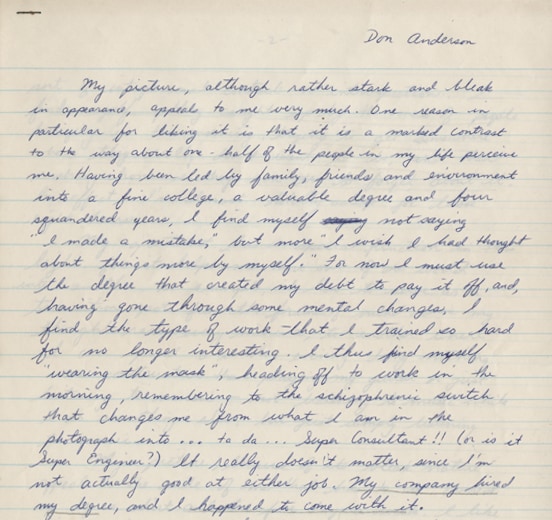 Don Anderson
My picture, although rather stark and bleak
in appearance, appeal to me very much. One reason in
particular for liking it is that it is a marked contrast
to the way about one-half of the people in my life perceive
me. Having been led by family, friends and environment
into a fine college, a valuable degree and four
squandered years, I find myself not saying
"I made a mistake," but more "I wish I had thought
about things more by myself." For now I must use
the degree that created my debt to pay it off, and,
having gone through some mental changes, I
find the type of work that I trained so hard
for no longer interesting. I thus find myself
"wearing the mask", heading off to work in the
morning, remembering to the schizophrenic switch
that changes me from what I am in the
photograph into ... ta da ... Super Consultant!! (or is it
Super Engineer?) It really doesn't matter, since I'm
not actually good at either job. My company hired
my degree, and I happened to come with it.